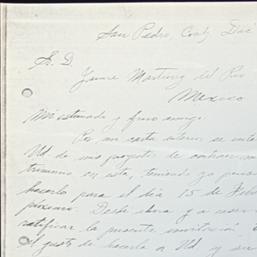 San Pedro, Coah, Dic
S. D.
Jaime Martinez del Rio
Mexico
Mi estimado y fino amigo:
Por mi carta anterior se
Ud de mis proyectos de
en esta, teniendo ya
hacerlo para el dia 15 de Feb
próximo. Desde ahora y a
ratificar la presente invitación
el gusto de hacerla a Ud y su